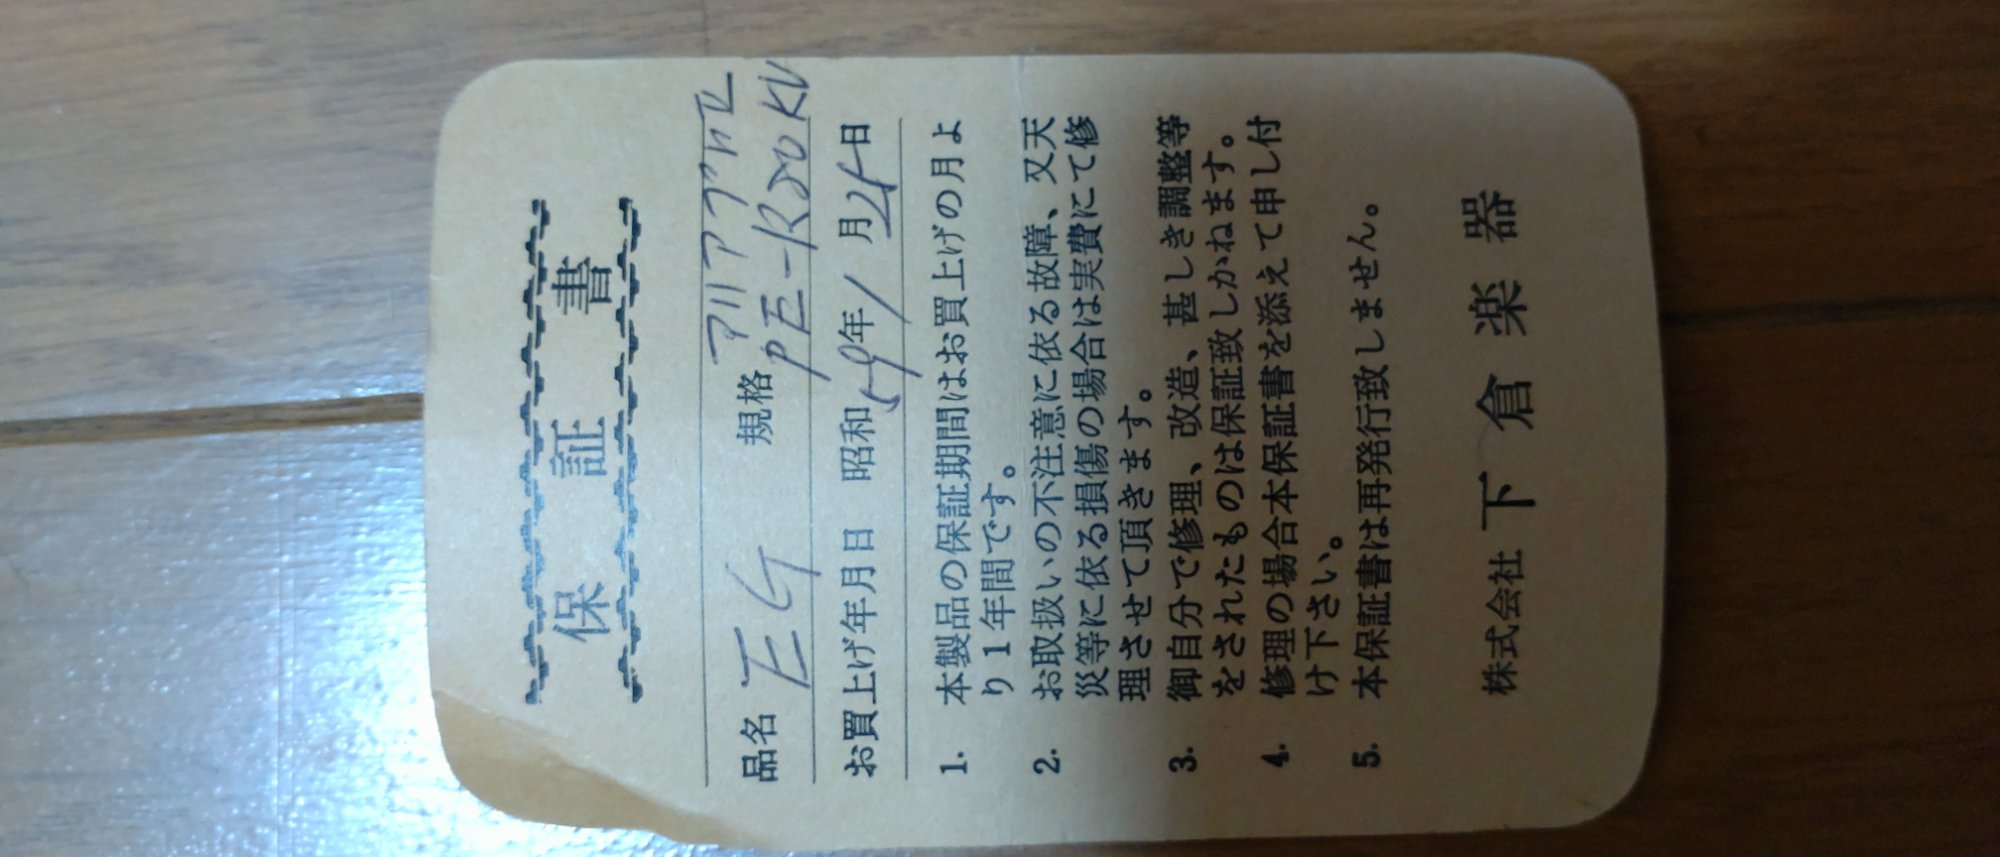 保証書
アリアプロⅡ
品名 EG 規格 PE-R80 KV
お買上げ年月日 昭和59年1月28日
1. 本製品の保証期間はお買上げの月よ
り1年間です。
2. お取扱いの不注意に依る故障、又天
災等に依る損傷の場合は実費にて修
理させて頂きます。
3. 御自分で修理、改造、甚しき調整等
をされたものは保証致しかねます。
4. 修理の場合本保証書を添えて申し付
け下さい。
5. 本保証書は再発行致しません。
株式会社 下倉楽器